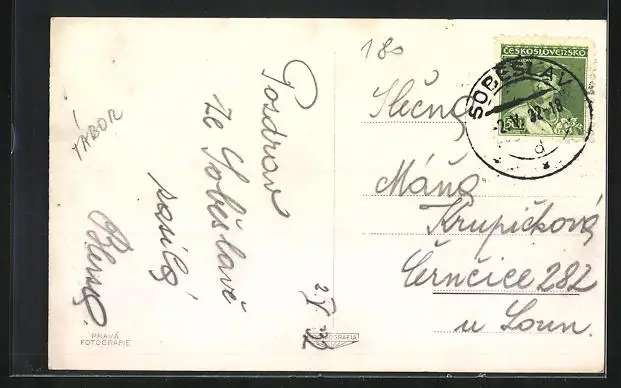 TÁBOR
Pozdrav
ze Soběslavě
posílá
2/V 32
PRAVÁ
FOTOGRAFIE
180
ČESKOSLOVENSKO
50
SOBĚSLAV
32-18
d
Slečna
Máňa
Krupičková
Černčice 282
u Loun.